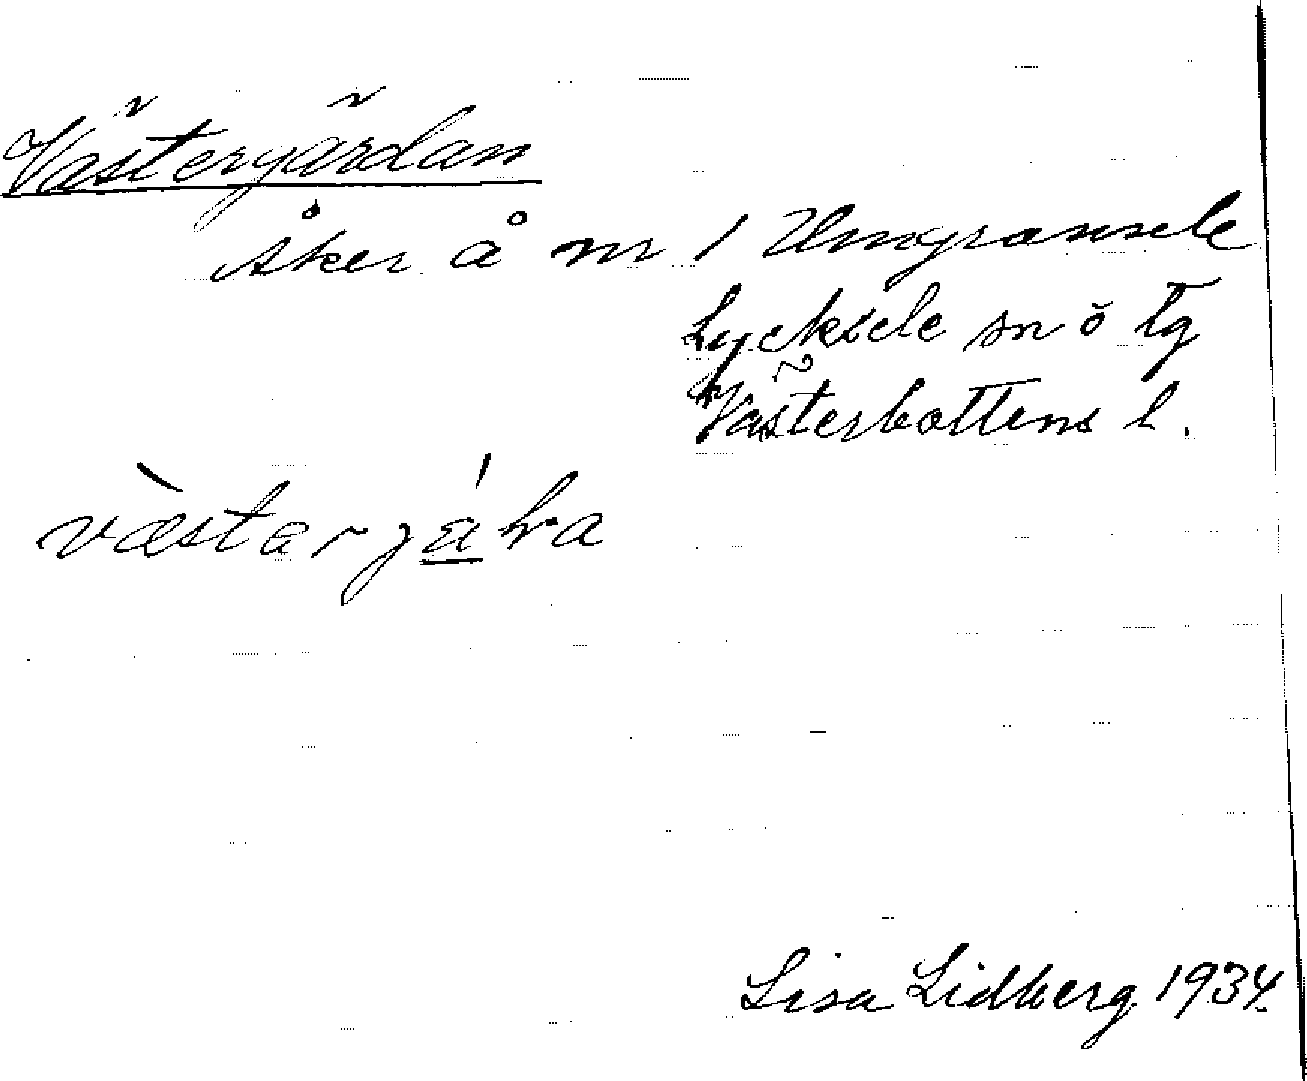 Västergärdan
åker å nr 1 Umgransele
Lycksele sn o tg
Västerbottens l.
Lisa Lidberg 1934.